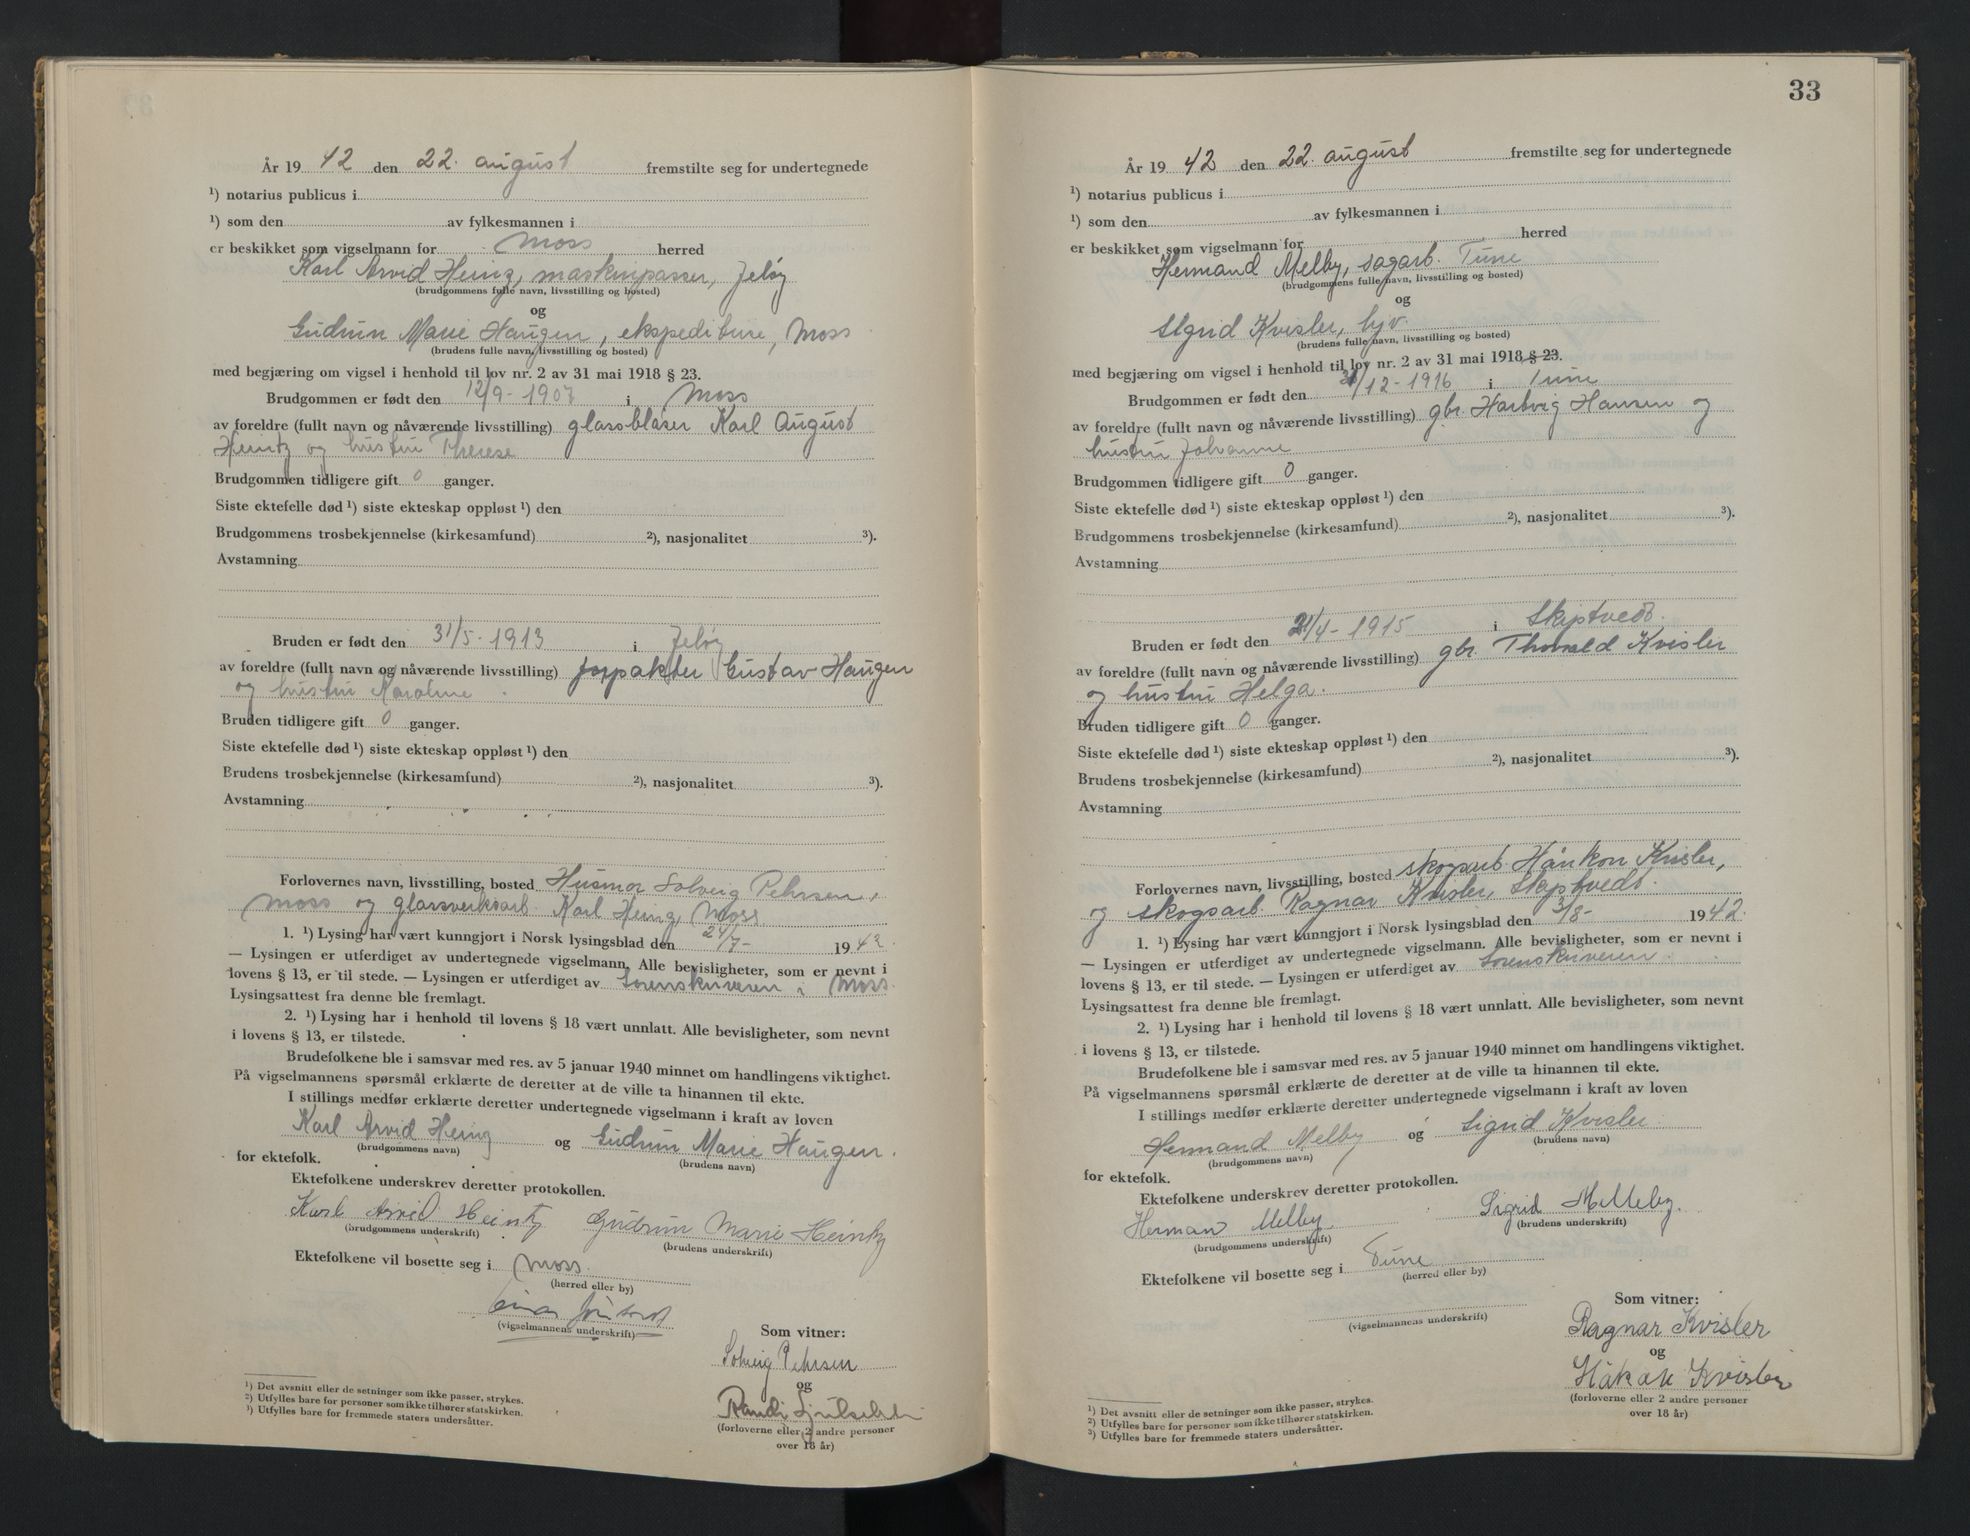 År 19 42 den 22. august fremstilte seg for undertegnede
¹) notarius publicus i
¹) som den av fylkesmannen i
er beskikket som vigselmann for Moss herred
Karl Arvid Heinz, maskinpasser, Jeløy
(brudgommens fulle navn, livsstilling og bosted)
og
Gudrun Marie Haugen, ekspeditrise, Moss
(brudens fulle navn, livsstilling og bosted)
med begjæring om vigsel i henhold til lov nr. 2 av 31 mai 1918 § 23.
Brudgommen er født den 12/9 - 1907 i Moss
av foreldre (fullt navn og nåværende livsstilling) glassblåser Karl August
Heintz og hustru Therese
Brudgommen tidligere gift 0 ganger.
Siste ektefelle død ¹) siste ekteskap oppløst ¹) den
Brudgommens trosbekjennelse (kirkesamfund) ²), nasjonalitet ³).
Avstamning
Bruden er født den 31/5 - 1913 i Jeløy
av foreldre (fullt navn og nåværende livsstilling) forpakter Gustav Haugen
og hustru Karoline
Bruden tidligere gift 0 ganger.
Siste ektefelle død ¹) siste ekteskap oppløst ¹) den
Brudens trosbekjennelse (kirkesamfund) ²), nasjonalitet ³).
Avstamning
Forlovernes navn, livsstilling, bosted Husmor Solveig Pehrsen,
Moss og glassverksarb. Karl Heinz, Moss
1. ¹) Lysing har vært kunngjort i Norsk lysingsblad den 24/7 - 19 42
— Lysingen er utferdiget av undertegnede vigselmann. Alle bevisligheter, som er nevnt i
lovens § 13, er til stede. — Lysingen er utferdiget av Sorenskriveren i Moss.
Lysingsattest fra denne ble fremlagt.
2. ¹) Lysing har i henhold til lovens § 18 vært unnlatt. Alle bevisligheter, som nevnt
i lovens § 13, er tilstede.
Brudefolkene ble i samsvar med res. av 5 januar 1940 minnet om handlingens viktighet.
På vigselmannens spørsmål erklærte de deretter at de ville ta hinannen til ekte.
I stillings medfør erklærte deretter undertegnede vigselmann i kraft av loven
Karl Arvid Heinz og Gudrun Marie Haugen.
(brudgommens navn) (brudens navn)
for ektefolk.
Ektefolkene underskrev deretter protokollen.
Karl Arvid Heintz Gudrun Marie Heintz
(brudgommens underskrift) (brudens underskrift)
Ektefolkene vil bosette seg i Moss.
(herred eller by)
(vigselmannens underskrift)
Som vitner:
Solveig Pehrsen
og
Randi
(forloverne eller 2 andre personer
over 18 år)
¹) Det avsnitt eller de setninger som ikke passer, strykes.
²) Utfylles bare for personer som ikke tilhører statskirken.
³) Utfylles bare for fremmede staters undersåtter.
33
År 19 42 den 22. august fremstilte seg for undertegnede
¹) notarius publicus i
¹) som den av fylkesmannen i
er beskikket som vigselmann for herred
Hermand Melby, sagarb. Tune
(brudgommens fulle navn, livsstilling og bosted)
og
Sigrid Kvisler, hjv.
(brudens fulle navn, livsstilling og bosted)
med begjæring om vigsel i henhold til lov nr. 2 av 31 mai 1918 § 23.
Brudgommen er født den /12 - 1916 i Tune
av foreldre (fullt navn og nåværende livsstilling) gbr. Hartvig Hansen og
hustru Johanne
Brudgommen tidligere gift 0 ganger.
Siste ektefelle død ¹) siste ekteskap oppløst ¹) den
Brudgommens trosbekjennelse (kirkesamfund) ²), nasjonalitet ³).
Avstamning
Bruden er født den 21/4 - 1915 i Skiptvedt.
av foreldre (fullt navn og nåværende livsstilling) gbr. Thorvald Kvisler
og hustru Helga.
Bruden tidligere gift 0 ganger.
Siste ektefelle død ¹) siste ekteskap oppløst ¹) den
Brudens trosbekjennelse (kirkesamfund) ²), nasjonalitet ³).
Avstamning
Forlovernes navn, livsstilling, bosted skogsarb. Håakon Kvisler,
og skogsarb. Ragnar Kvisler, Skiptvedt.
1. ¹) Lysing har vært kunngjort i Norsk lysingsblad den 3/8 - 19 42.
— Lysingen er utferdiget av undertegnede vigselmann. Alle bevisligheter, som er nevnt i
lovens § 13, er til stede. — Lysingen er utferdiget av Sorenskriveren.
Lysingsattest fra denne ble fremlagt.
2. ¹) Lysing har i henhold til lovens § 18 vært unnlatt. Alle bevisligheter, som nevnt
i lovens § 13, er tilstede.
Brudefolkene ble i samsvar med res. av 5 januar 1940 minnet om handlingens viktighet.
På vigselmannens spørsmål erklærte de deretter at de ville ta hinannen til ekte.
I stillings medfør erklærte deretter undertegnede vigselmann i kraft av loven
Hermand Melby og Sigrid Kvisler.
(brudgommens navn) (brudens navn)
for ektefolk.
Ektefolkene underskrev deretter protokollen.
Herman Melby. Sigrid Melleby.
(brudgommens underskrift) (brudens underskrift)
Ektefolkene vil bosette seg i Tune
(herred eller by)
(vigselmannens underskrift)
Som vitner:
Ragnar Kvisler
og
Håkon Kvisler
(forloverne eller 2 andre personer
over 18 år)
¹) Det avsnitt eller de setninger som ikke passer, strykes.
²) Utfylles bare for personer som ikke tilhører statskirken.
³) Utfylles bare for fremmede staters undersåtter.